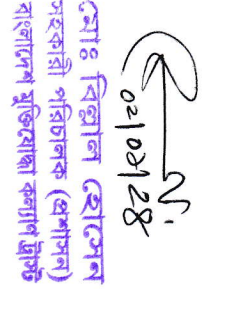 মোঃ বিল্লাল হোসেন
সহকারী পরিচালক (প্রশাসন)
বাংলাদেশ মুক্তিযোদ্ধা কল্যাণ ট্রাস্ট